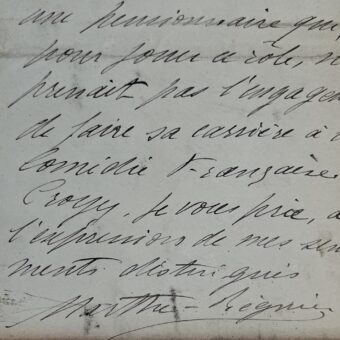 une pensionnaire qui,
pour jouer ce rôle, n
prenait pas l'engagem
de faire sa carrière à l
Comédie Française
Croyez, je vous prie, à
l'expression de mes sen
ments distingués
Marthe Régnier